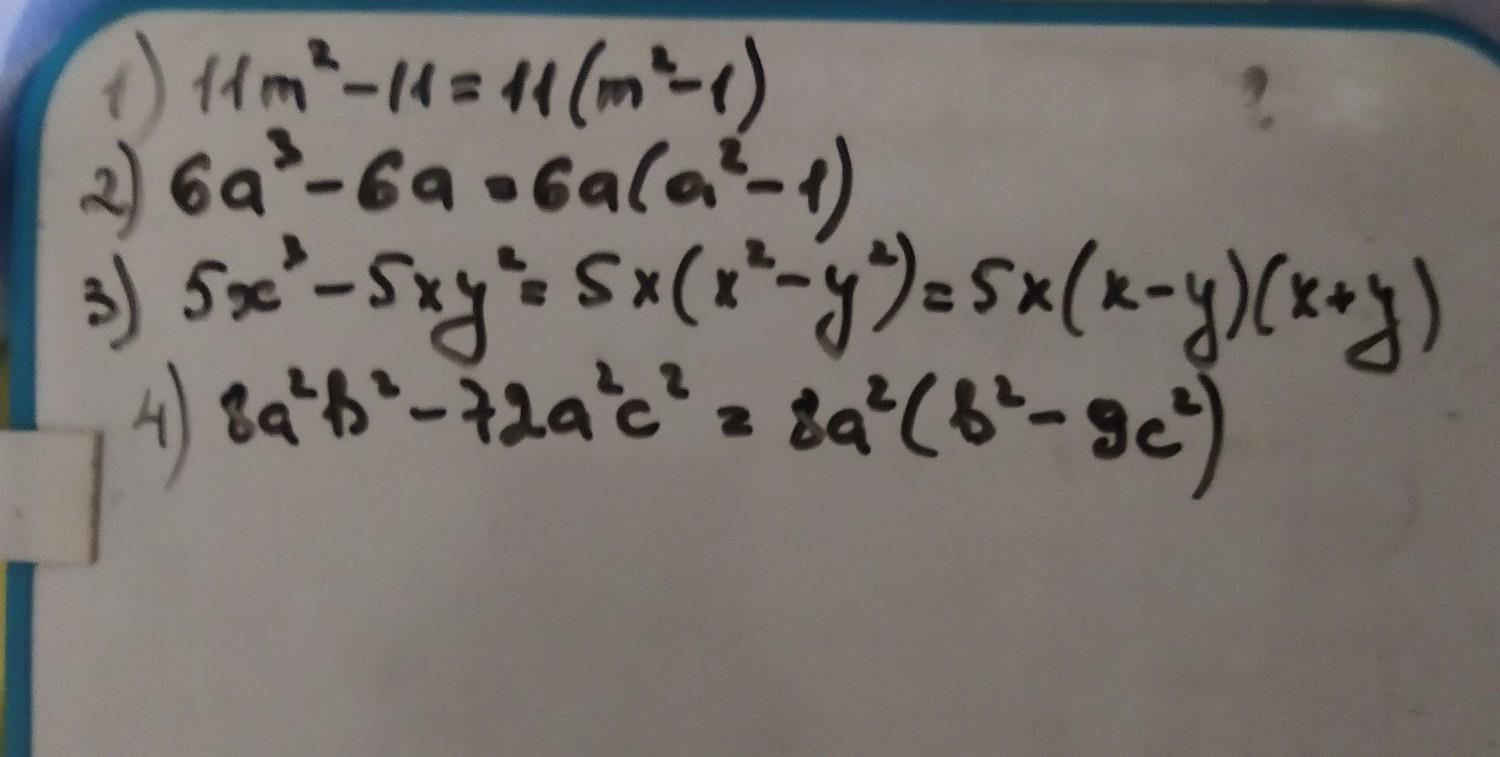 1) 11m² - 11 = 11(m² - 1)
2) 6a³ - 6a = 6a(a² - 1)
3) 5x³ - 5xy² = 5x(x² - y²) = 5x(x - y)(x + y)
4) 8a²b² - 72a²c² = 8a²(b² - 9c²)